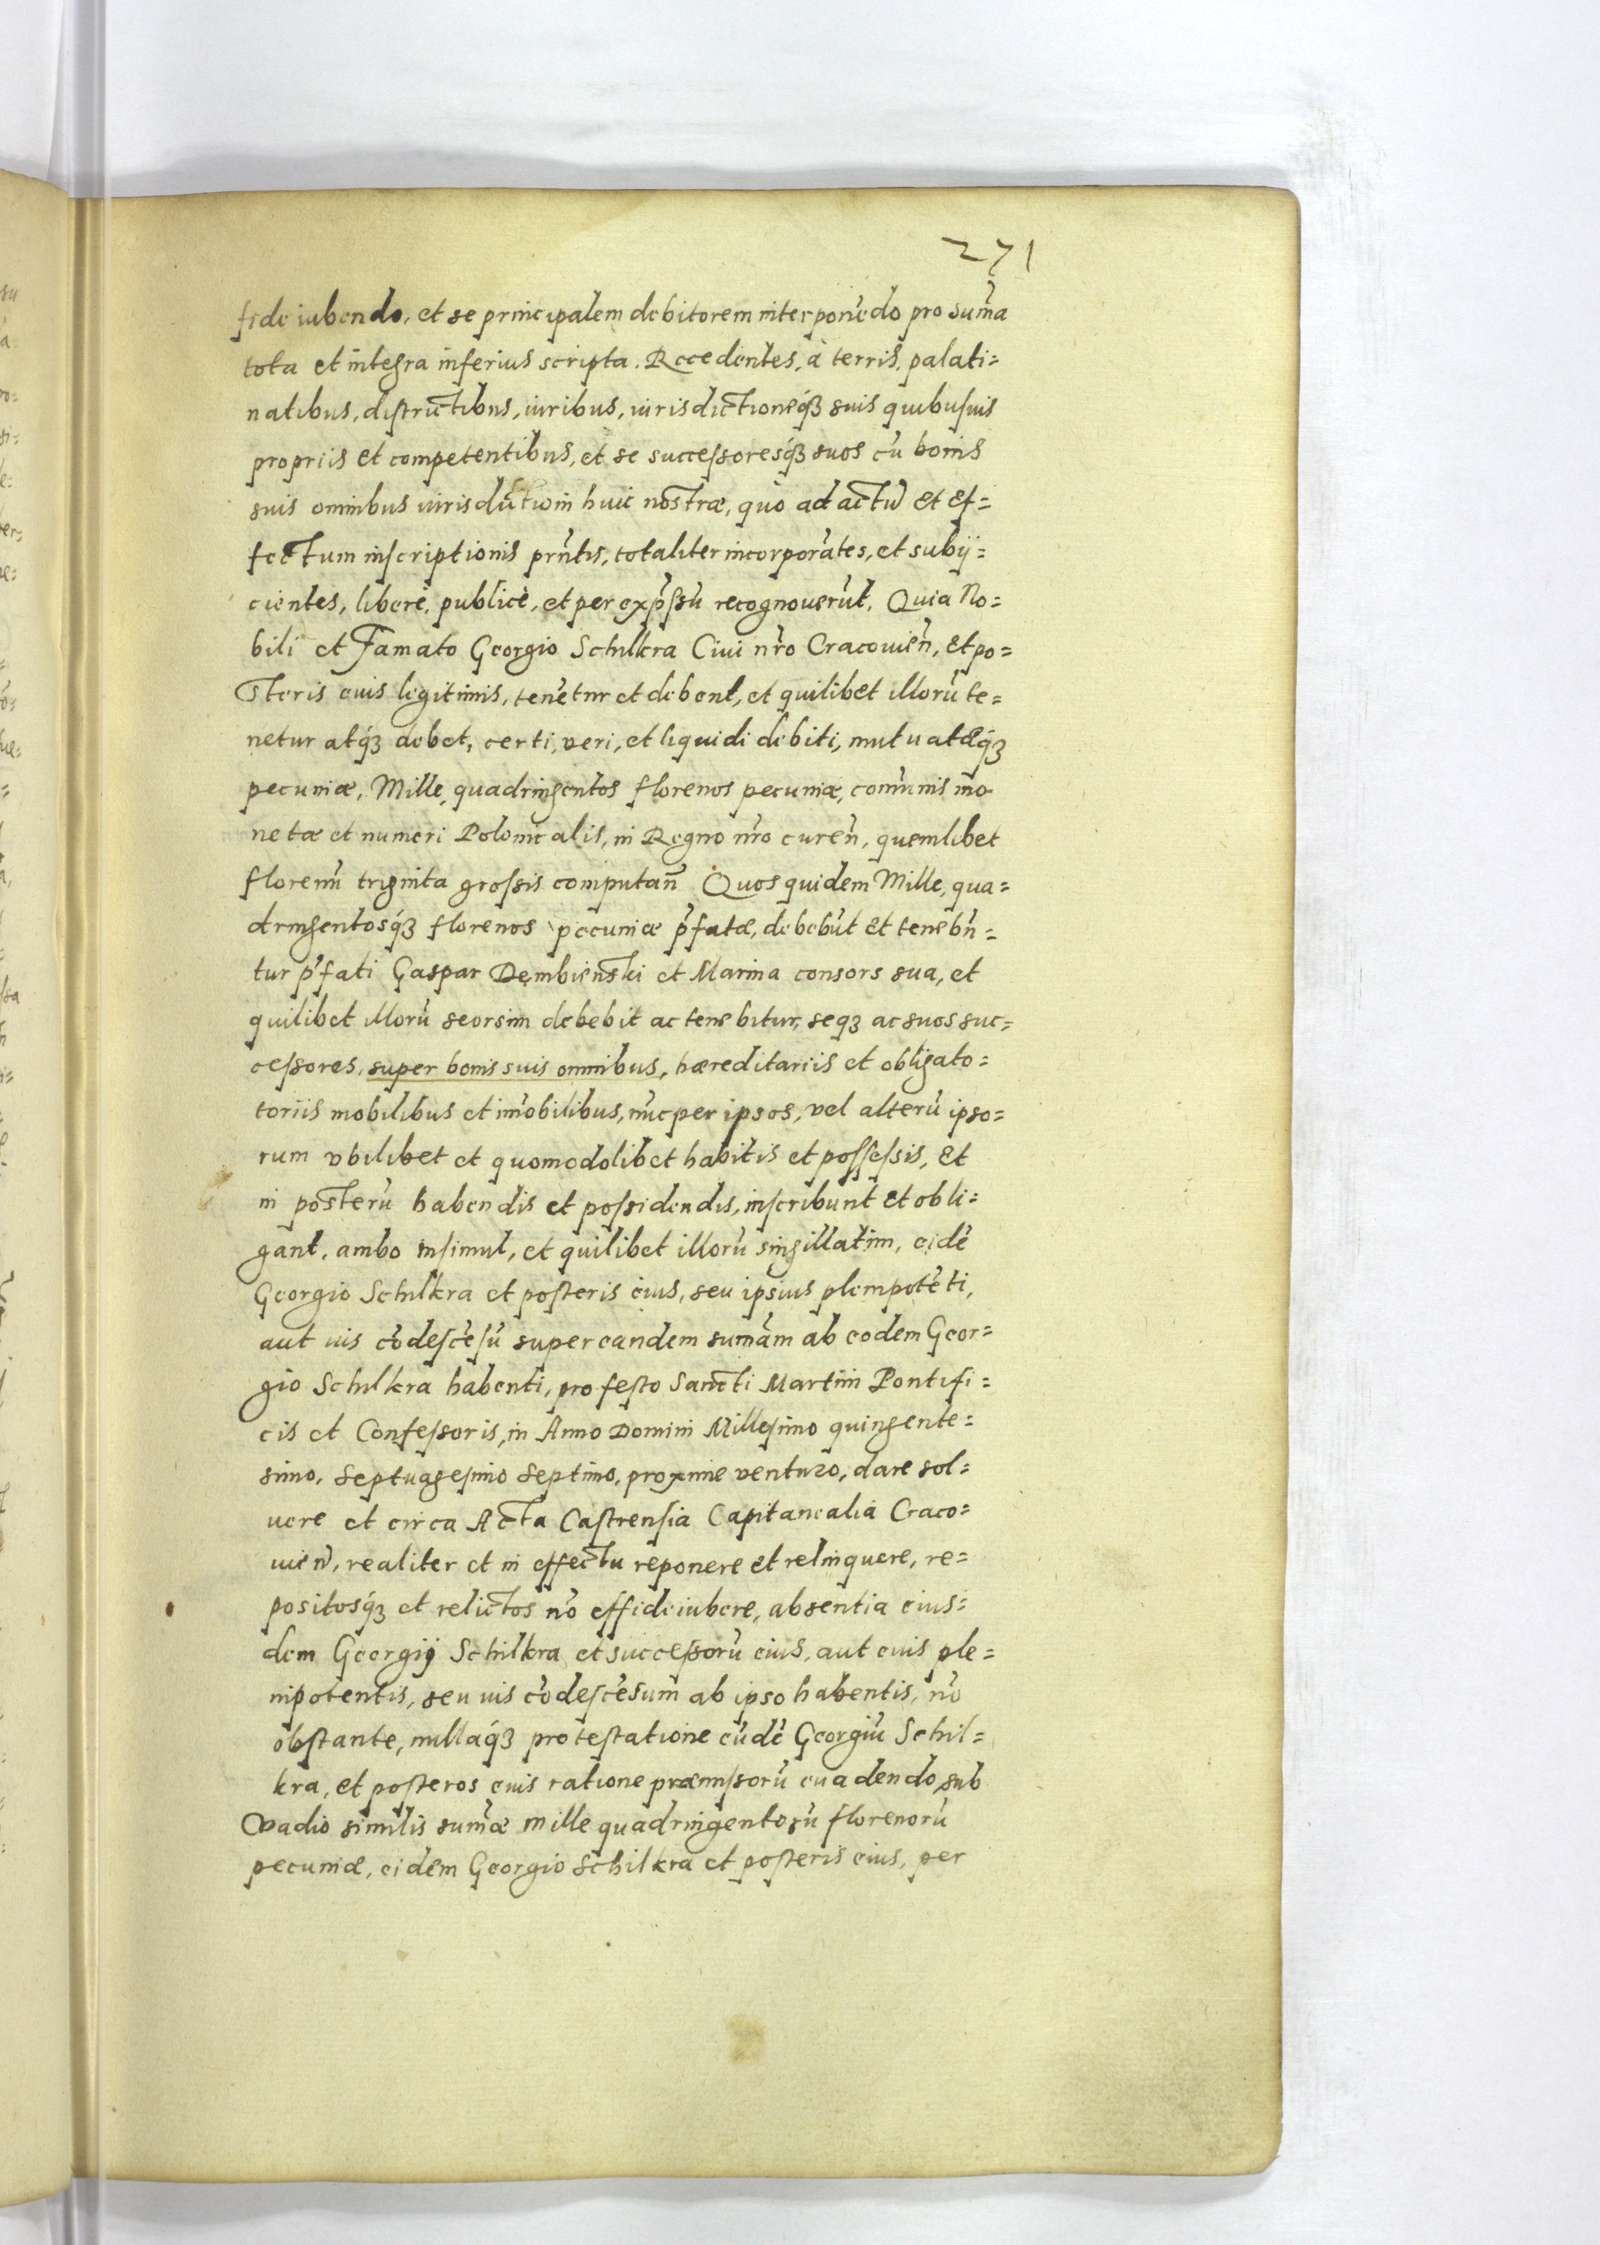 271
fide iubendo, et se principalem debitorem interponẽdo pro sum̃a
tota et integra inferius scripta. Recedentes, à terris, palati=
natibus, districtibus, iuribus, iurisdictioneq́ꝫ suis quibusuis
propriis et competentibus, et se successoresq́ꝫ suos cũ bonis
suis omnibus iurisdictioni huic nostræ, quo ad actũ et ef=
fectum inscriptionis prñtis, totaliter incorporãtes, et subij=
cientes, liberè, publicè, et per exp̃ssũ recognouerũt. Quia No=
bili et Famato Georgio Schilkra Ciui nr̃o Cracouieñ, et po=
steris eius legitimis, tenẽtur et debent, et quilibet illorũ te=
netur atq́ꝫ debet, certi, veri, et liquidi debiti, mutuatæq́ꝫ
pecuniæ, Mille, quadringentos florenos pecuniæ, com̃unis mo
netæ et numeri Polonicalis, in Regno nr̃o cureñ, quemlibet
florenũ triginta grossis computañ Quos quidem Mille, qua=
dringentosq́ꝫ florenos pecuniæ p̃fatæ, debebũt et tenebñ=
tur p̃fati Gaspar Dembienski et Marina consors sua, et
quilibet illorũ seorsim debebit ac tenebitur, seqꝫ ac suos suc=
cessores, super bonis suis omnibus, hæreditariis et obligato=
toriis mobilibus et im̃obilibus, nũc per ipsos, vel alterũ ipso=
rum vbilibet et quomodolibet habitis et possessis, et
in posterũ habendis et possidendis, inscribunt et obli=
gant, ambo insimul, et quilibet illorũ singillatim, eidẽ
Georgio Schilkra et posteris eius, seu ipsius plenipotẽti,
aut ius cõdescẽsũ super eandem sum̃am ab eodem Geor=
gio Schilkra habenti, pro festo Sancti Martini Pontifi=
cis et Confessoris, in Anno Domini Millesimo quingente=
simo, Septuagesimo Septimo, proxime venturo, dare sol=
uere et circa Acta Castrensia Capitanealia Craco=
uieñ, realiter et in effectu reponere et relinquere, re=
positosq́ꝫ et relictos nõ effideiubere, absentia eius=
dem Georgij Schilkra et successorũ eius, aut euis ple=
nipotentis, seu ius cõdescẽsum ab ipso habentis, nõ
obstante, nullaq́ꝫ protestatione eũdẽ Georgiũ Schil=
kra, et posteros euis ratione præmissorũ euadendo, sub
Vadio similis sum̃æ mille quadringentorũ florenorũ
pecuniæ, eidem Georgio Schilkra et posteris eius, per